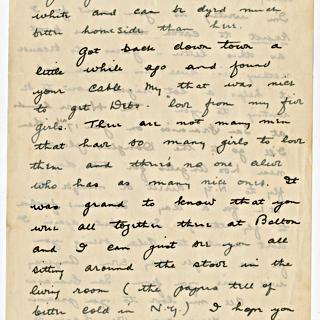 white and can be dyed much
better homeside than here.
Got back down town a
little while ago and found
your cable. My that was nice
to get Debs. love from my five
girls. There are not many men
that have so many girls to love
them and there's no one alive
who has as many nice ones. It
was grand to know that you
were all together there at Bolton
and I can just see you all
sitting around the stove in the
living room (the papers tell of
bitter cold in N.Y.) I hope you